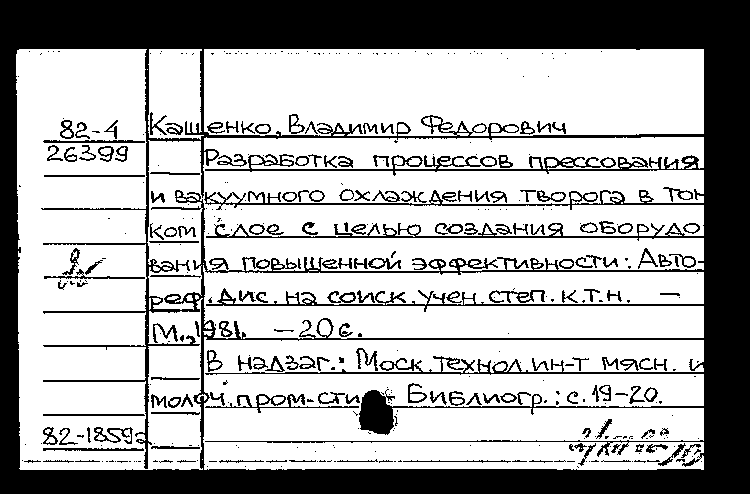 82-4 Кащенко, Владимир Федорович
26399 Разработка процессов прессования
и вакуумного охлаждения творога в тон
ком слое с целью создания оборудо
вания повышенной эффективности: Авто-
реф. дис. на соиск. учен. степ. к.т.н. —
М., 1981. — 20 с.
В надзаг.: Моск. технол. ин-т мясн. и
молоч. пром-сти Библиогр.: с. 19-20.
82-1859а